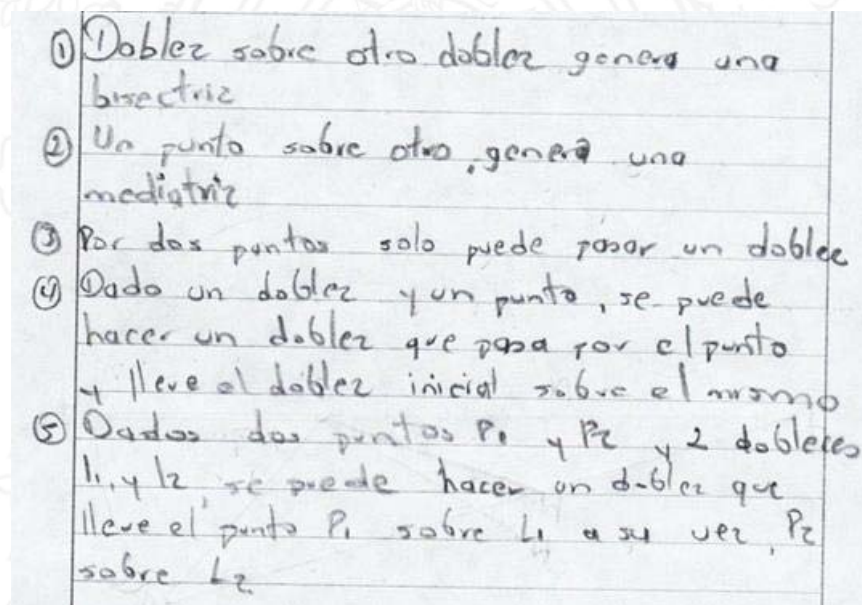 ① Doblez sobre otro doblez genera una
bisectriz
② Un punto sobre otro, genera una
mediatriz
③ Por dos puntos solo puede pasar un doblez
④ Dado un doblez y un punto, se puede
hacer un doblez que pasa por el punto
y lleve el doblez inicial sobre el mismo
⑤ Dados dos puntos P1 y P2 y 2 dobleces
l1, y l2 se puede hacer un doblez que
lleve el punto P1 sobre L1 a su vez, P2
sobre L2